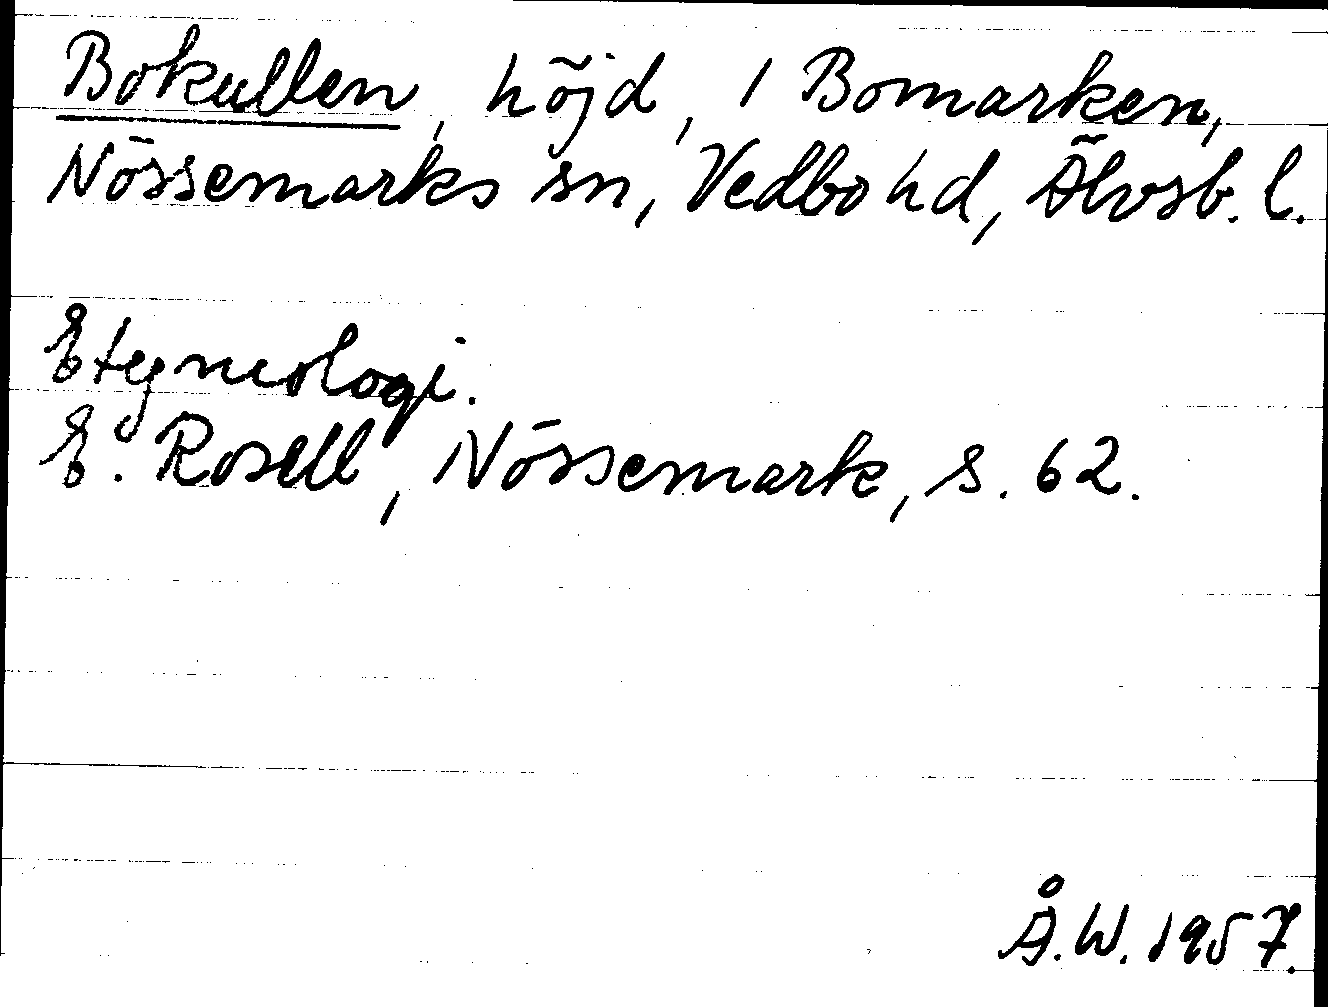 Bokullen, höjd, 1 Bomarken,
Nössemarks sn, Vedbo hd, Älvsb. l.
Etymologi.
E. Rosell, Nössemark, s. 62.
Å.W. 1957.